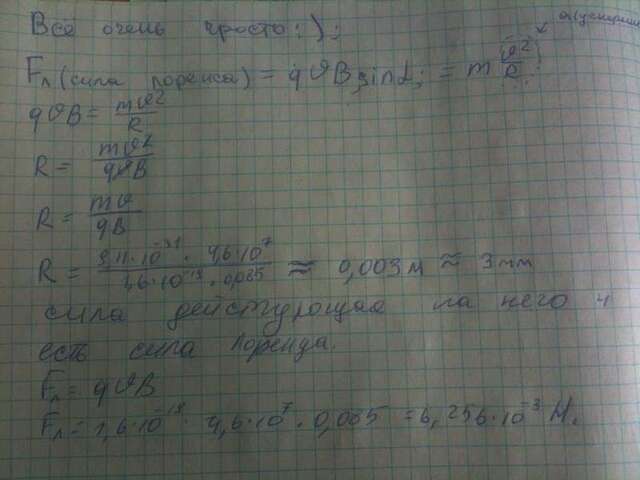 Все очень просто:);
Fл(сила лоренса) = qϑB sinα; = m ϑ²/R
qϑB = mϑ²/R
R = mϑ²/qϑB
R = mϑ/qB
R = 9,11·10⁻³¹ · 4,6·10⁷ / 1,6·10⁻¹⁹ · 0,085 ≈ 0,003м ≈ 3мм
сила действующая на него и
есть сила Лоренца.
Fл = qϑB
Fл = 1,6·10⁻¹⁹ · 4,6·10⁷ · 0,085 = 6,256·10⁻³ Н.